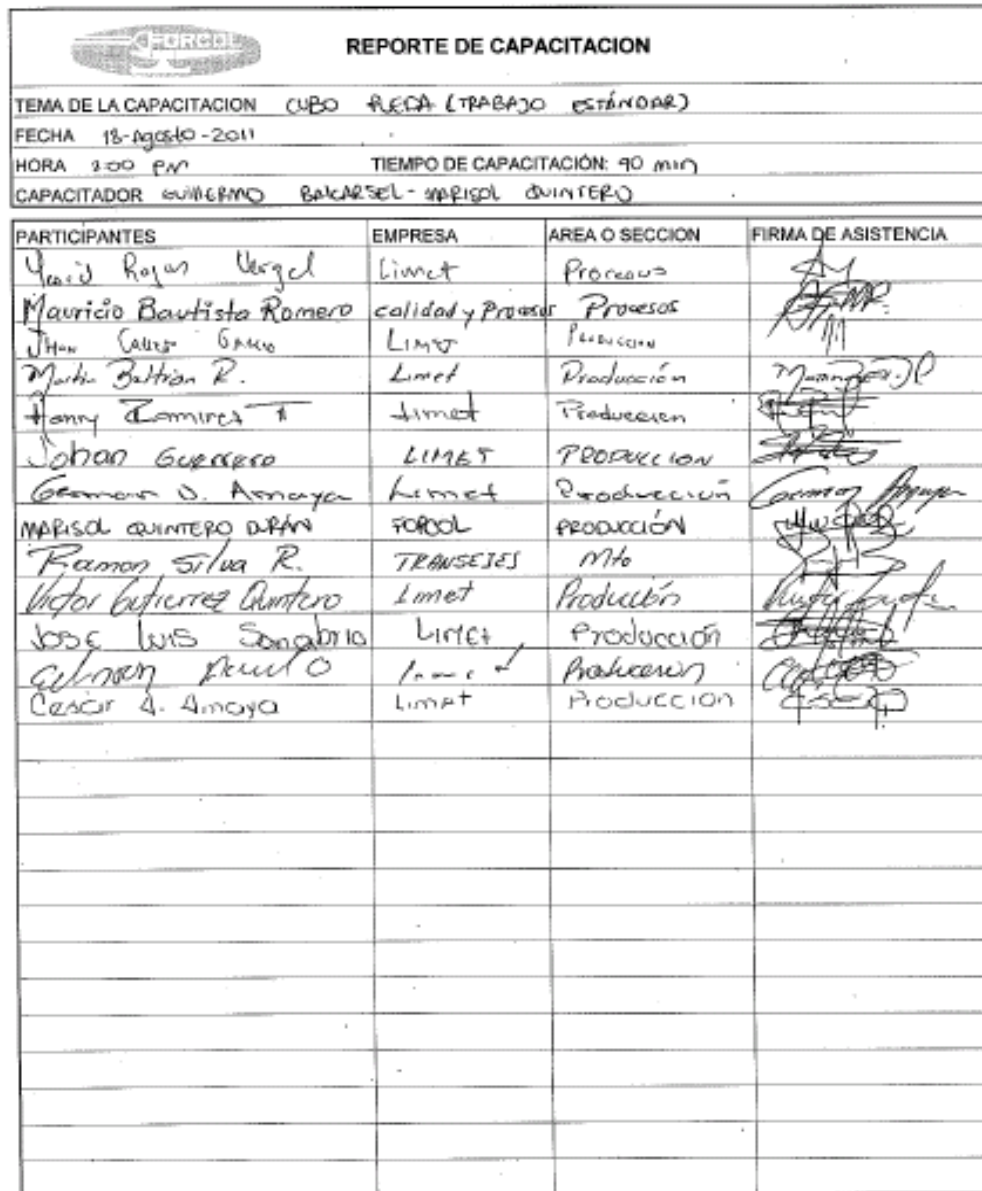 FORCOL
REPORTE DE CAPACITACION
TEMA DE LA CAPACITACION CUBO RUEDA (TRABAJO ESTÁNDAR)
FECHA 18-Agosto-2011
HORA 2:00 PM TIEMPO DE CAPACITACIÓN: 90 min
CAPACITADOR GUILLERMO BALCARSEL - MARISOL QUINTERO
PARTICIPANTES EMPRESA AREA O SECCION FIRMA DE ASISTENCIA
Yesid Rojas Vergel Limet Procesos
Mauricio Bautista Romero calidad y Procesos Procesos
Jhon LIMET Producción
Martin Beltrán R. Limet Producción
Ramirez T Limet Produccion
Johan Guerrero LIMET PRODUCCION
German D. Amaya Limet Producción German Amaya
MARISOL QUINTERO DURÁN FORCOL PRODUCCIÓN
Ramon Silva R. TRANSEJES Mto
Victor Gutierrez Quintero Limet Producción
JOSE LUIS Sanabria Limet Producción
Limet Produccion
Cesar A. Amaya Limet Produccion